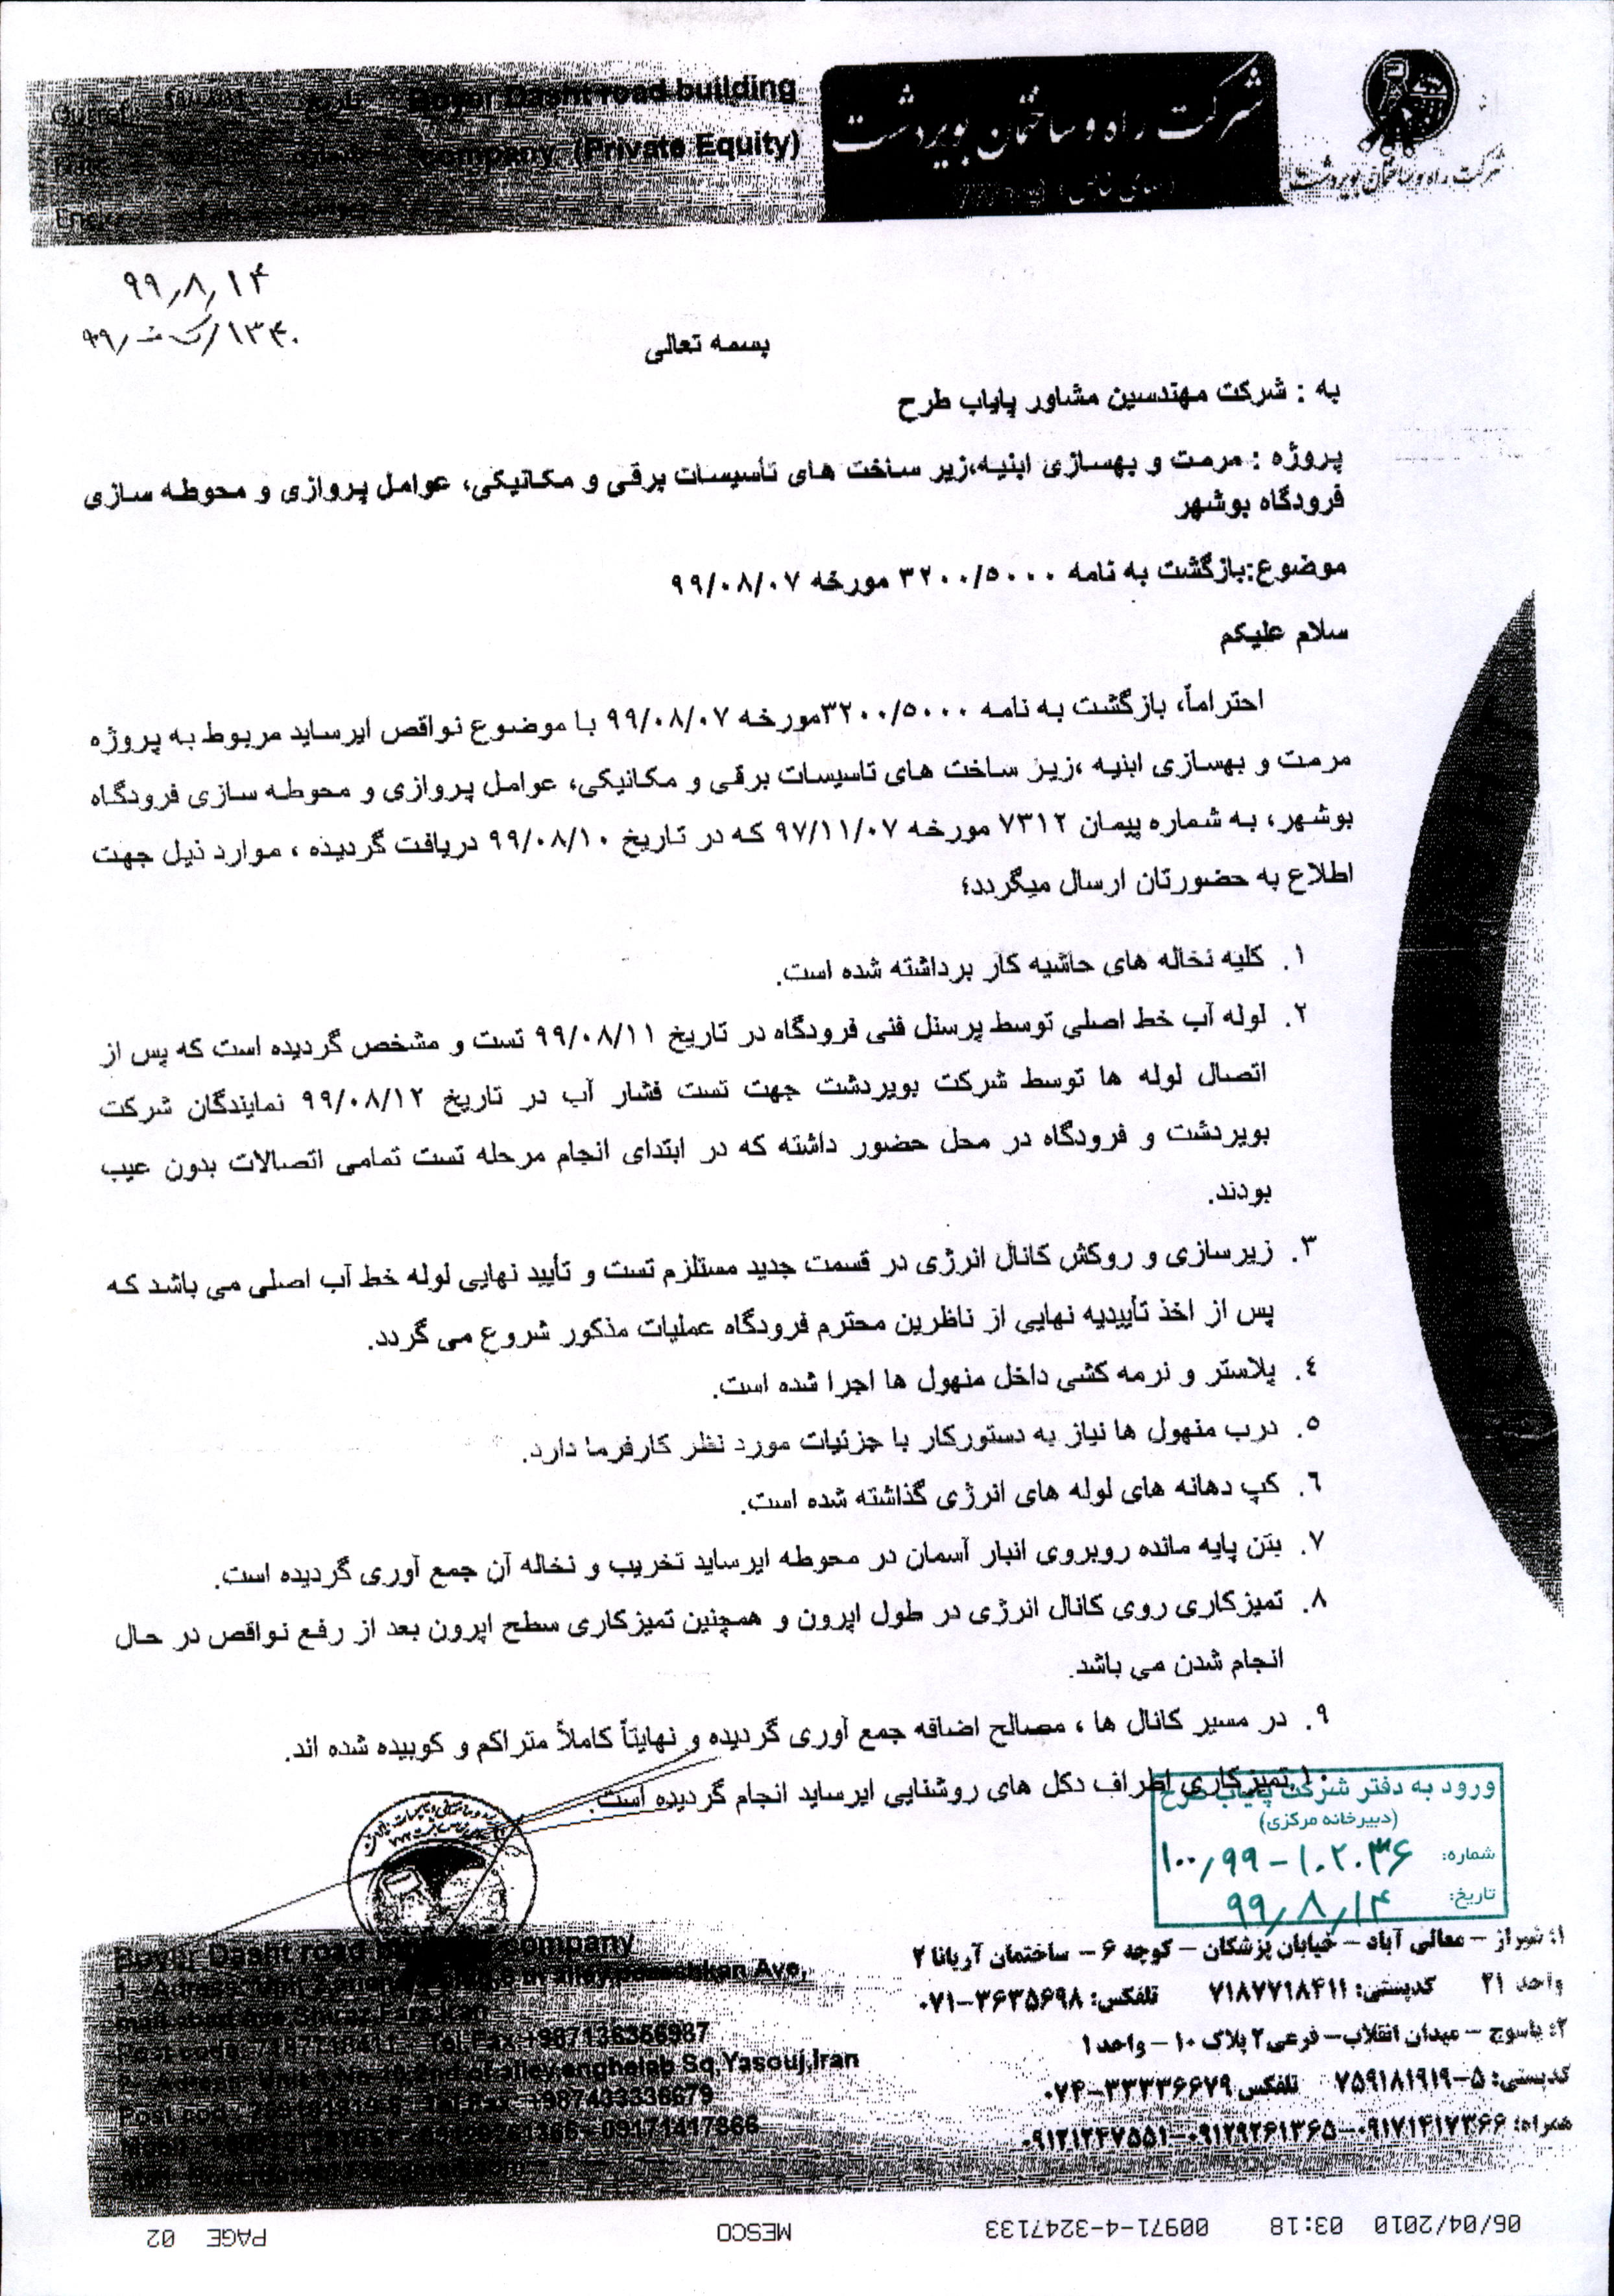 شرکت راه و ساختمان بویردشت
Boyer Dasht road building
company (Private Equity)
شرکت راه و ساختمان بویردشت
۹۹٫۸٫۱۴
بسمه تعالی
به : شرکت مهندسین مشاور پایاب طرح
پروژه : مرمت و بهسازی ابنیه،زیر ساخت های تأسیسات برقی و مکانیکی، عوامل پروازی و محوطه سازی
فرودگاه بوشهر
موضوع:بازگشت به نامه ۳۲۰۰/۵۰۰۰ مورخه ۹۹/۰۸/۰۷
سلام علیکم
احتراماً، بازگشت به نامه ۳۲۰۰/۵۰۰۰مورخه ۹۹/۰۸/۰۷ با موضوع نواقص ایرساید مربوط به پروژه
مرمت و بهسازی ابنیه ،زیر ساخت های تاسیسات برقی و مکانیکی، عوامل پروازی و محوطه سازی فرودگاه
بوشهر، به شماره پیمان ۷۳۱۲ مورخه ۹۷/۱۱/۰۷ که در تاریخ ۹۹/۰۸/۱۰ دریافت گردیده ، موارد ذیل جهت
اطلاع به حضورتان ارسال میگردد؛
۱. کلیه نخاله های حاشیه کار برداشته شده است.
۲. لوله آب خط اصلی توسط پرسنل فنی فرودگاه در تاریخ ۹۹/۰۸/۱۱ تست و مشخص گردیده است که پس از
اتصال لوله ها توسط شرکت بویردشت جهت تست فشار آب در تاریخ ۹۹/۰۸/۱۲ نمایندگان شرکت
بویردشت و فرودگاه در محل حضور داشته که در ابتدای انجام مرحله تست تمامی اتصالات بدون عیب
بودند.
۳. زیرسازی و روکش کانال انرژی در قسمت جدید مستلزم تست و تأیید نهایی لوله خط آب اصلی می باشد که
پس از اخذ تأییدیه نهایی از ناظرین محترم فرودگاه عملیات مذکور شروع می گردد.
٤. پلاستر و نرمه کشی داخل منهول ها اجرا شده است.
٥. درب منهول ها نیاز به دستورکار با جزئیات مورد نظر کارفرما دارد.
٦. کپ دهانه های لوله های انرژی گذاشته شده است.
۷. بتن پایه مانده روبروی انبار آسمان در محوطه ایرساید تخریب و نخاله آن جمع آوری گردیده است.
۸. تمیزکاری روی کانال انرژی در طول اپرون و همچنین تمیزکاری سطح اپرون بعد از رفع نواقص در حال
انجام شدن می باشد.
۹. در مسیر کانال ها ، مصالح اضافه جمع آوری گردیده و نهایتاً کاملاً متراکم و کوبیده شده اند.
۱۰. تمیزکاری اطراف دکل های روشنایی ایرساید انجام گردیده است.
ورود به دفتر شرکت پایاب طرح
(دبیرخانه مرکزی)
شماره: ۱۰۰٫۹۹-۱۰۲۰۳۶
تاریخ: ۹۹٫۸٫۱۴
۱: شیراز – معالی آباد – خیابان پزشکان – کوچه ۶ – ساختمان آریانا ۲
واحد ۲۱ کدپستی: ۷۱۸۷۷۱۸۴۱۱ تلفکس: ۳۶۳۵۶۹۸-۰۷۱
۲: یاسوج – میدان انقلاب– فرعی ۲ پلاک ۱۰ – واحد ۱
کدپستی: ۵-۷۵۹۱۸۱۹۱۹ تلفکس ۳۳۳۳۶۶۷۹-۰۷۴
همراه: ۰۹۱۷۱۴۱۷۳۶۶-۰۹۱۲۹۲۶۱۳۶۵-۰۹۱۲۱۲۴۷۵۵۱
Boyer Dasht road company
Tel,Fax:+987136356987
enghelab Sq,Yasouj,Iran
06/04/2010 03:18 00971-4-3247133 MESCO PAGE 02